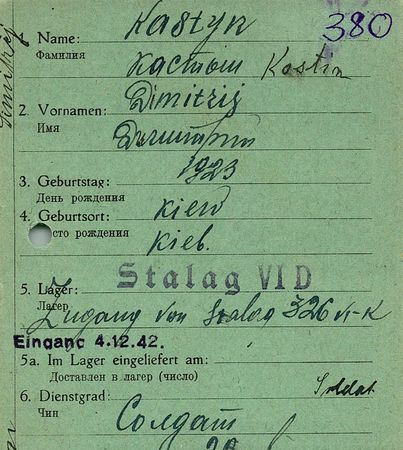 Kastyn
380
Name:
Фамилия
Kostin
Dimitrij
2. Vornamen:
Имя
Димитрий
1923
3. Geburtstag:
День рождения
4. Geburtsort: Kiew
сто рождения Киев.
Stalag VI D
5. Lager:
Лагер
Zugang von Stalag 326 VI-K
Eingang 4.12.42.
5a. Im Lager eingeliefert am:
Доставлен в лагер (число)
Soldat
6. Dienstgrad:
Чин
Солдат